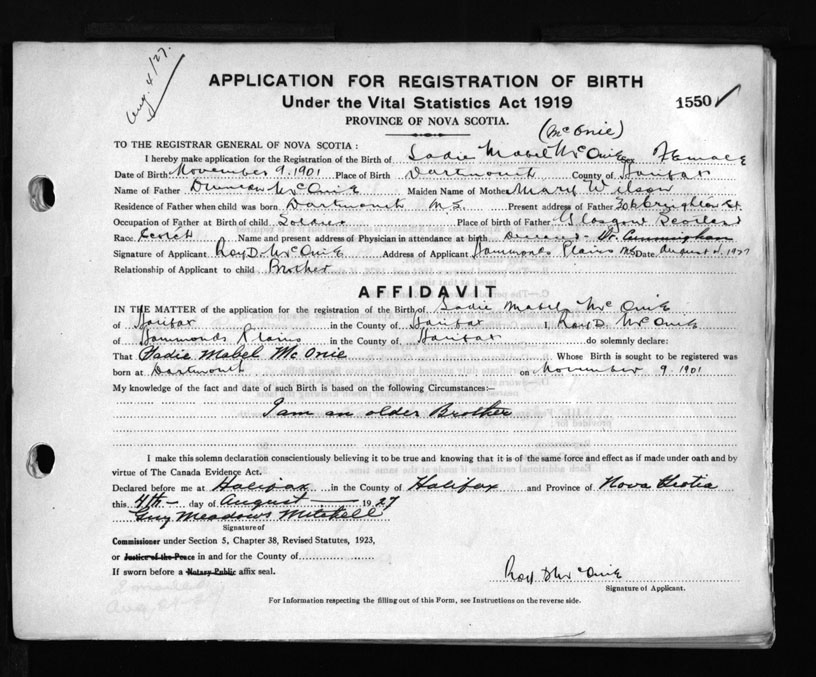 Aug. 4/27.
APPLICATION FOR REGISTRATION OF BIRTH
Under the Vital Statistics Act 1919
1550
PROVINCE OF NOVA SCOTIA.
(McOnie)
TO THE REGISTRAR GENERAL OF NOVA SCOTIA:
I hereby make application for the Registration of the Birth of Sadie Mabel McOnie Sex Female
Date of Birth November 9. 1901 Place of Birth Dartmouth County of Halifax
Name of Father Duncan McOnie Maiden Name of Mother Mary Wilson
Residence of Father when child was born Dartmouth N.S. Present address of Father Creighton St.
Occupation of Father at Birth of child Soldier Place of birth of Father Glasgow Scotland
Race Name and present address of Physician in attendance at birth Deceased - Dr. Cunningham
Signature of Applicant Roy D. McOnie Address of Applicant Hammonds Plains NS Date August 4. 1927
Relationship of Applicant to child Brother
AFFIDAVIT
IN THE MATTER of the application for the registration of the Birth of Sadie Mabel McOnie
of Halifax in the County of Halifax I, Roy D. McOnie
of Hammonds Plains in the County of Halifax do solemnly declare:
That Sadie Mabel McOnie Whose Birth is sought to be registered was
born at Dartmouth on November 9. 1901
My knowledge of the fact and date of such Birth is based on the following Circumstances:—
I am an older Brother
I make this solemn declaration conscientiously believing it to be true and knowing that it is of the same force and effect as if made under oath and by
virtue of The Canada Evidence Act.
Declared before me at Halifax in the County of Halifax and Province of Nova Scotia
this 4th — day of August — 1927
Guy Meadows Mitchell
Signature of
Commissioner under Section 5, Chapter 38, Revised Statutes, 1923,
or Justice of the Peace in and for the County of
If sworn before a Notary Public affix seal.
Roy D McOnie
Signature of Applicant.
For Information respecting the filling out of this Form, see Instructions on the reverse side.